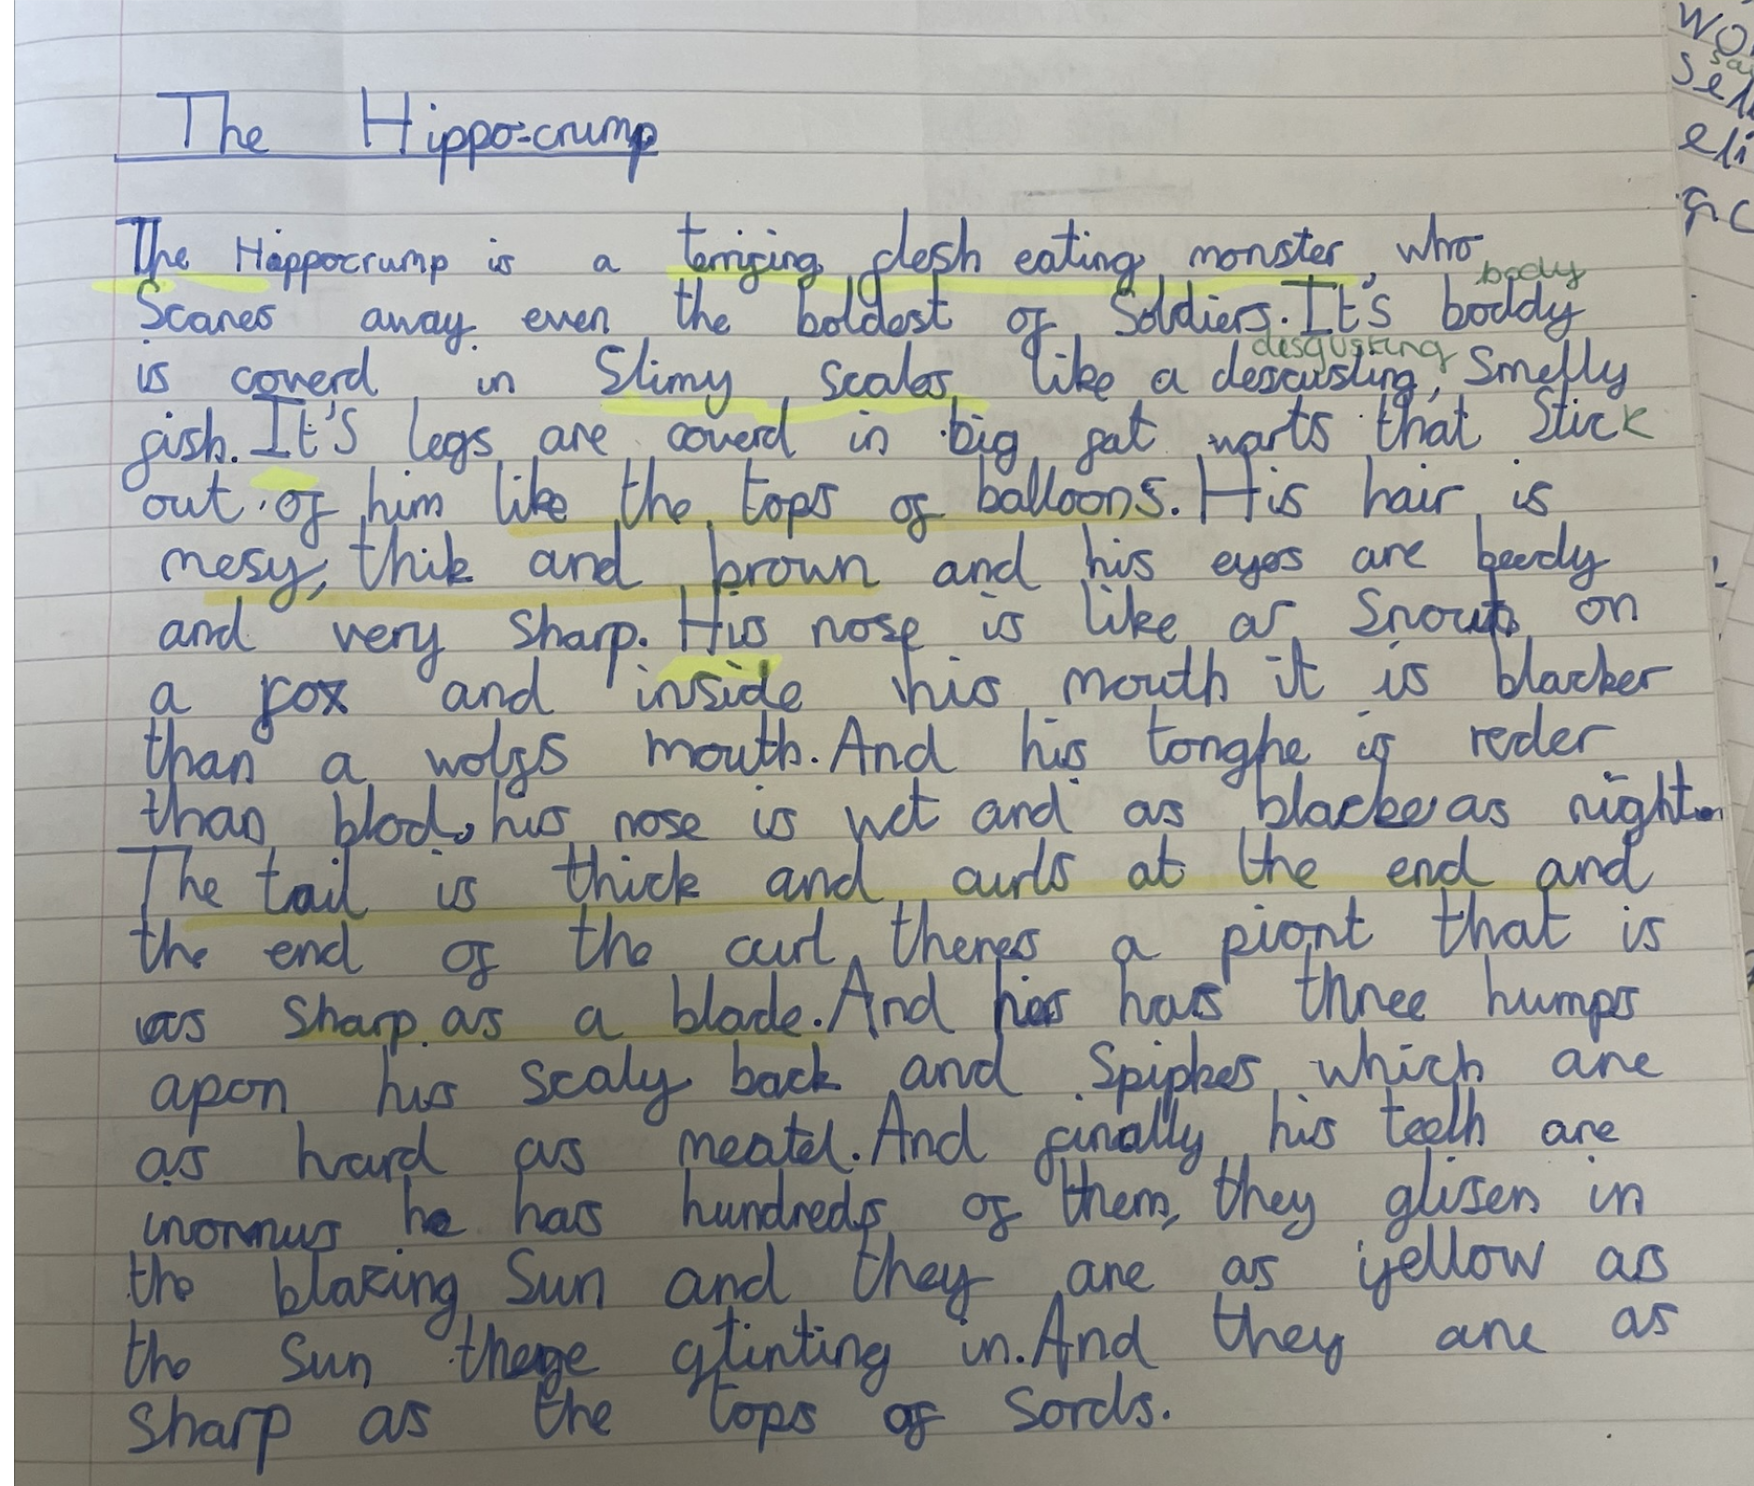 The Hippo-crump
The Hippocrump is a terrifing flesh eating monster, who
Scares away even the boldest of Soldiers. It's boddy
body
is coverd in Slimy scales, like a descusting, Smelly
disgusting
fish. It's legs are coverd in big fat warts that Stick
out of him like the tops of balloons. His hair is
mesy, thik and brown and his eyes are beedy
and very sharp. His nose is like a Snout on
a fox and inside his mouth it is blacker
than a wolfs mouth. And his tonghe is reder
than blod, his nose is wet and as blacke as night.
The tail is thick and curls at the end and
the end of the curl theres a piont that is
as sharp as a blade. And he has three humps
apon his scaly back and Spipkes which are
as hard as meatel. And finally his teeth are
inormus he has hundreds of them, they glisen in
the blazing Sun and they are as yellow as
the Sun there glinting in. And they are as
sharp as the tops of Sords.
wo
sa
sell
eli